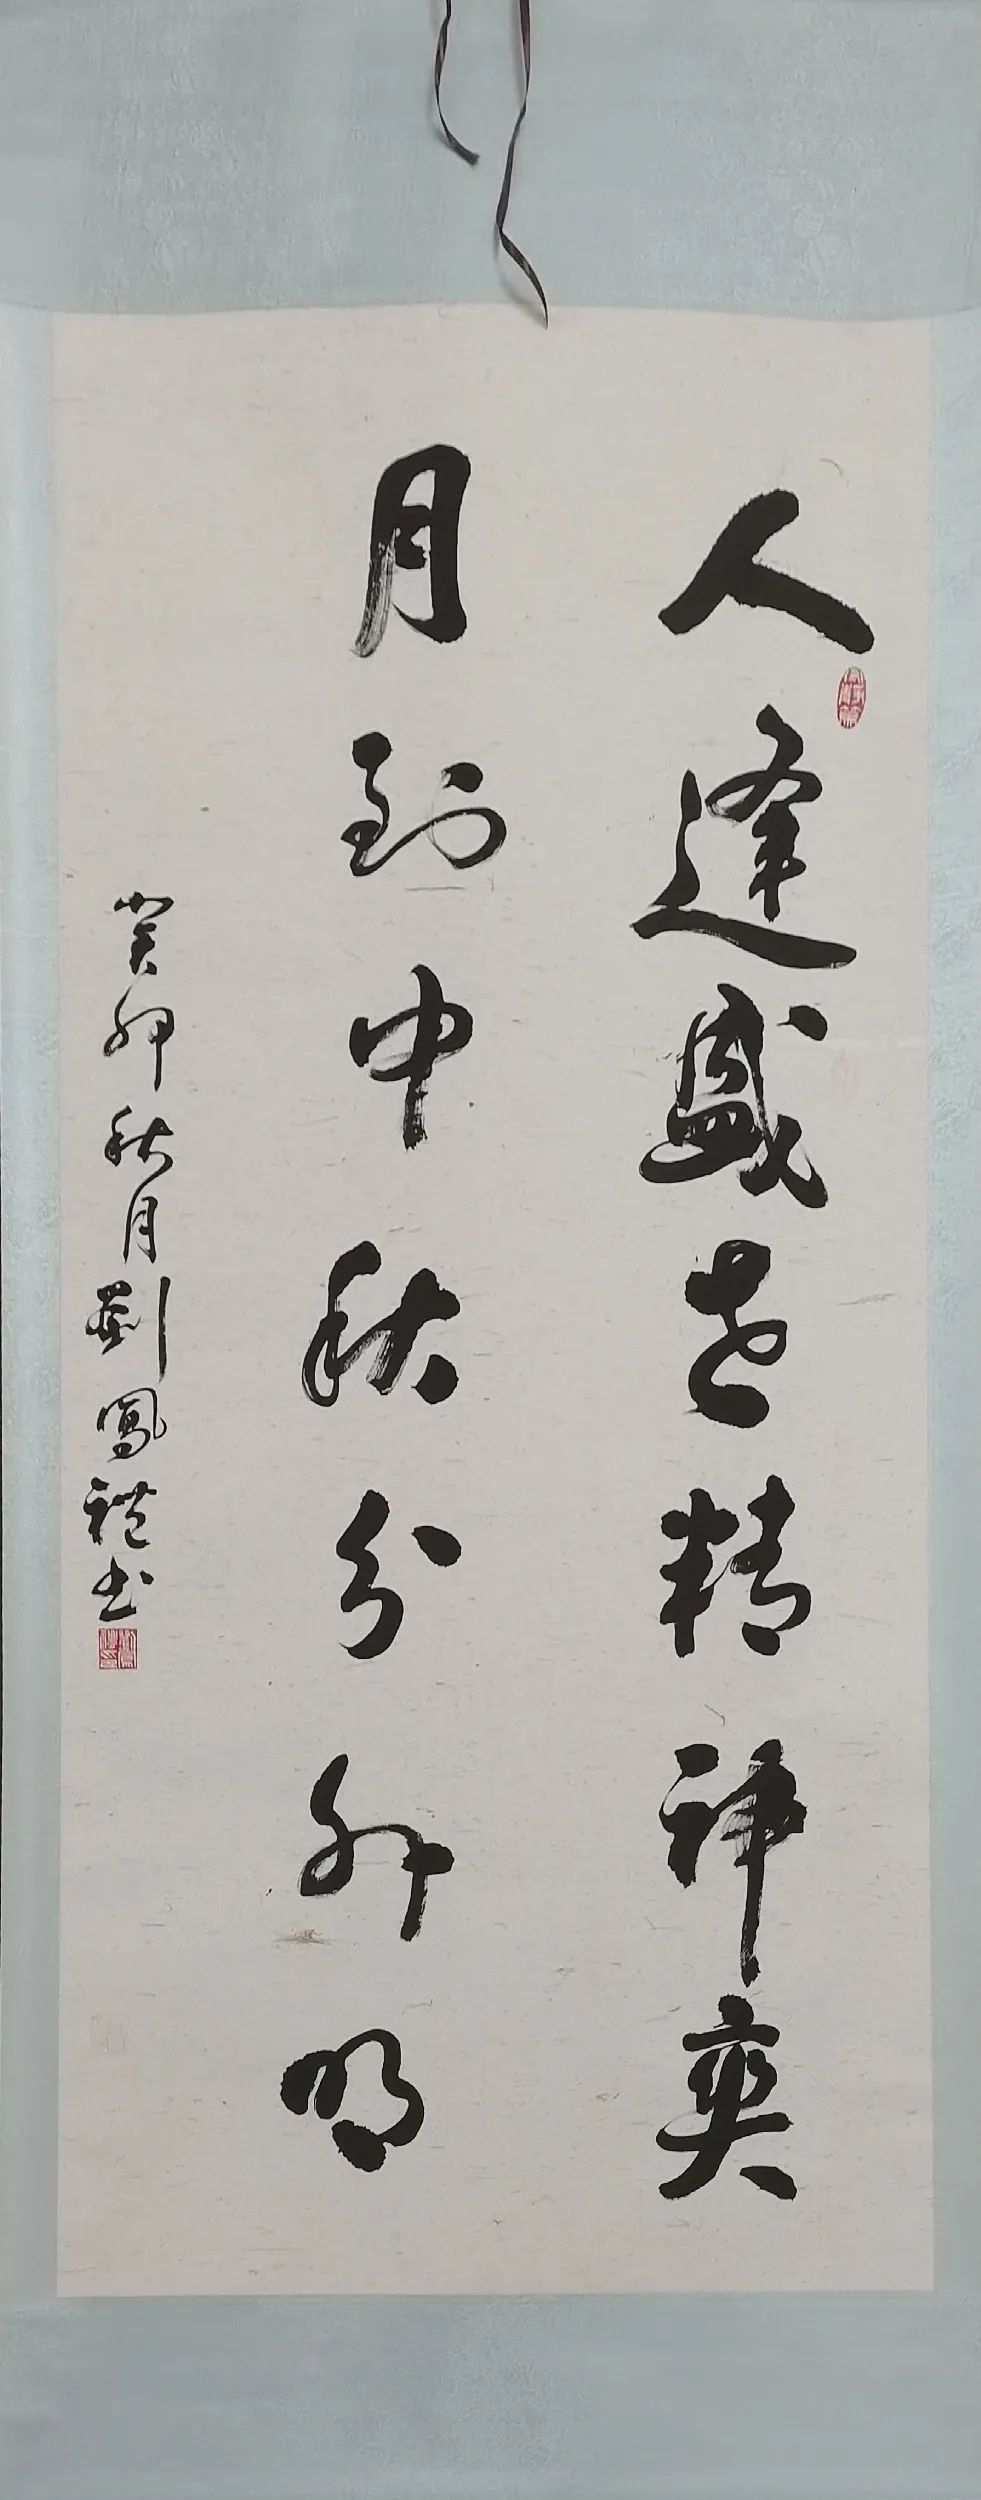 人逢盛世精神爽
月到中秋分外明
癸卯秋月劉鳳禮书